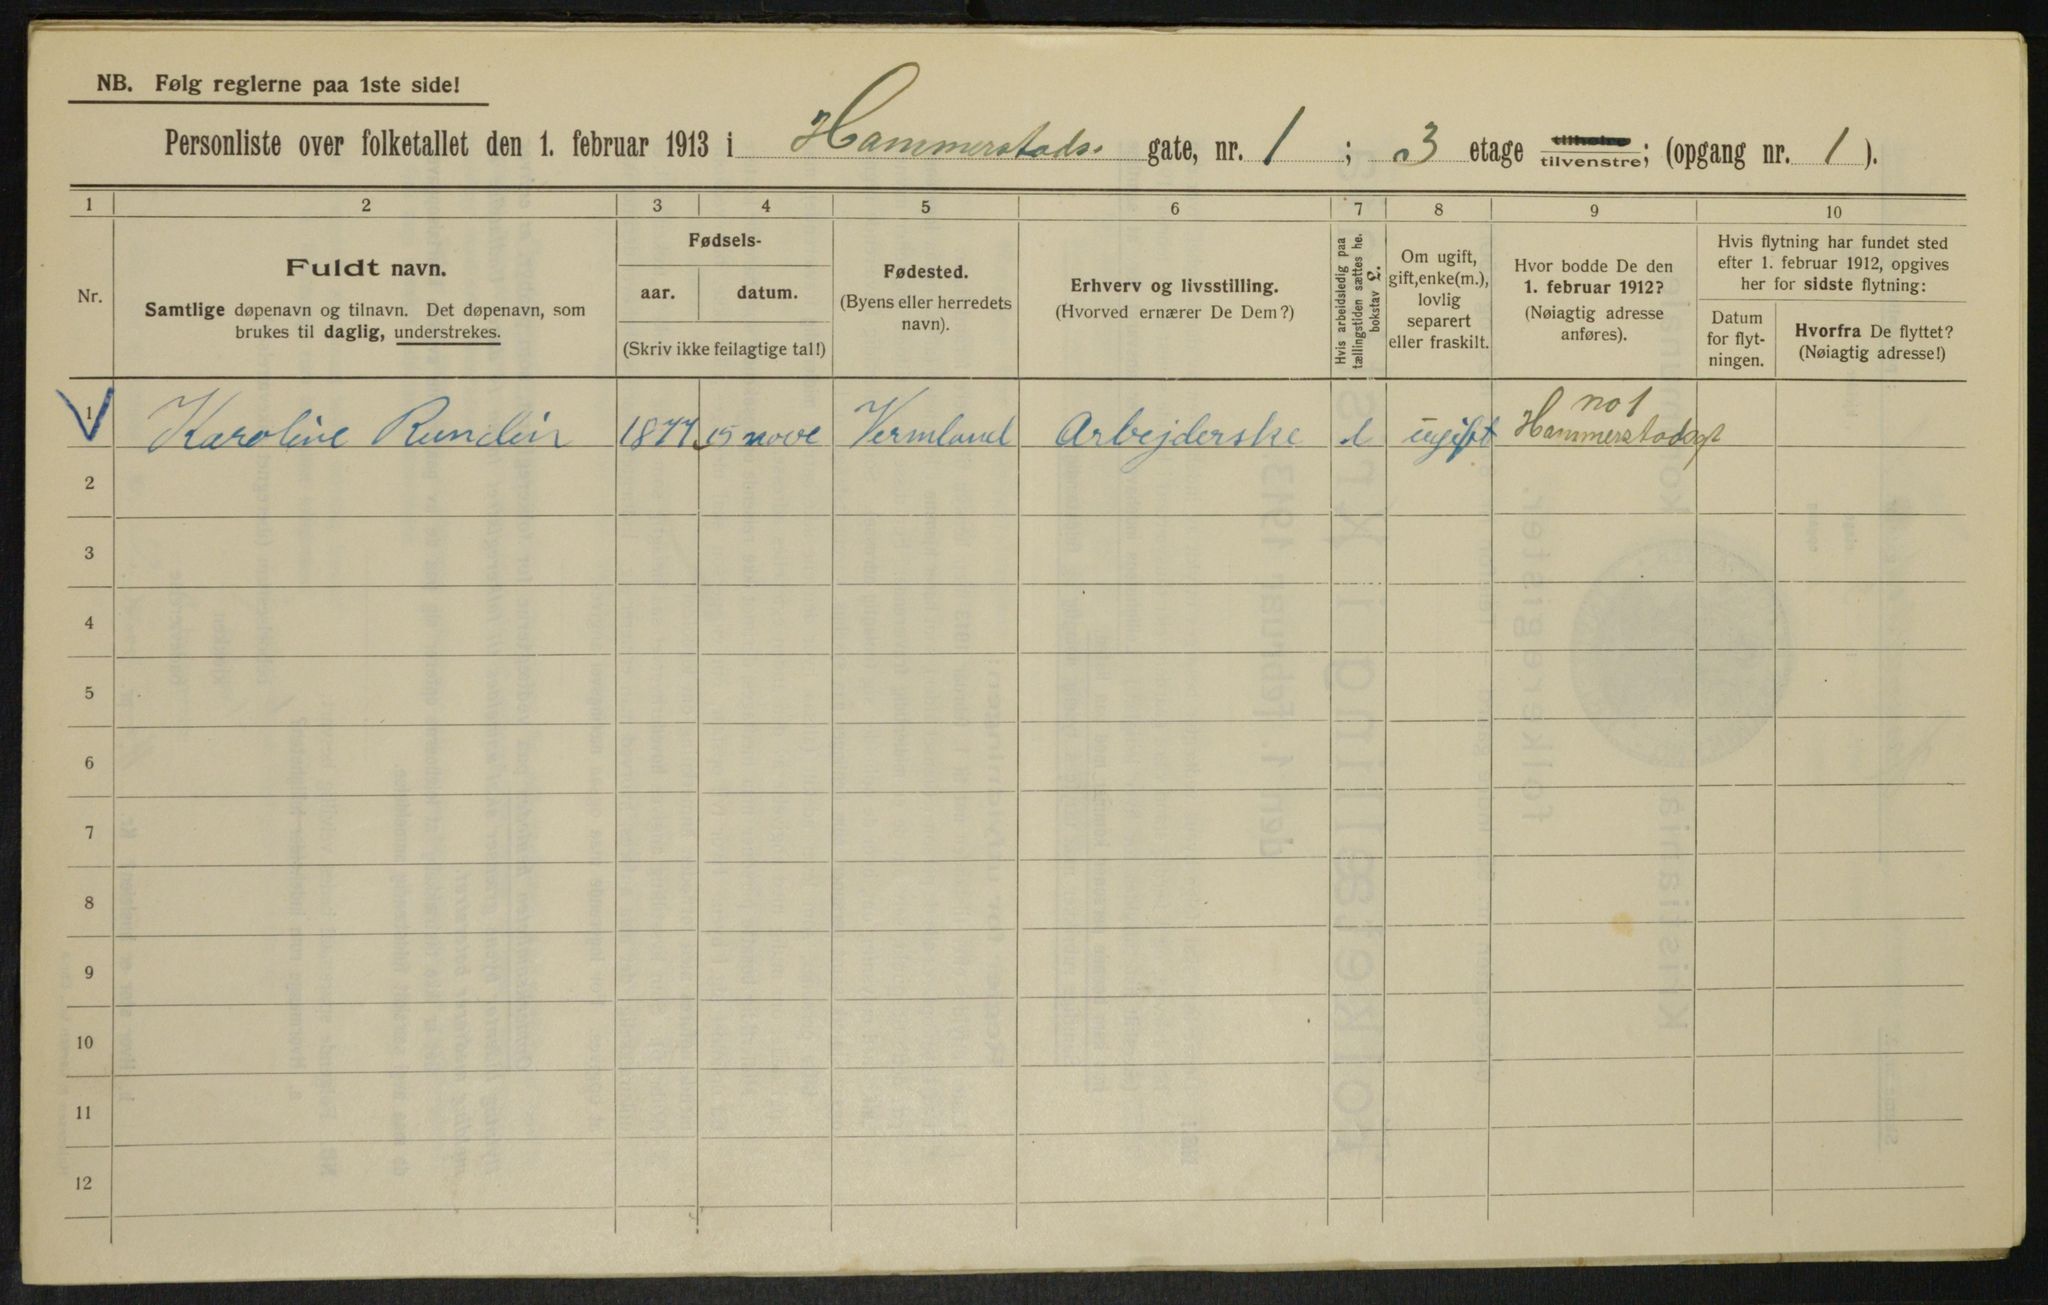 NB. Følg reglerne paa 1ste side!
Personliste over folketallet den 1. februar 1913 i Hammerstads. gate, nr. 1 ; 3 etage tilhøire tilvenstre; (opgang nr. 1 ).
1 2 3 4 5 6 7 8 9 10
Nr.
Fuldt navn.
Samtlige døpenavn og tilnavn. Det døpenavn, som
brukes til daglig, understrekes.
Fødsels-
aar. datum.
(Skriv ikke feilagtige tal!)
Fødested.
(Byens eller herredets
navn).
Erhverv og livsstilling.
(Hvorved ernærer De Dem?)
Hvis arbeidsledig paa
tællingstiden sættes he.
bokstav L.
Om ugift,
gift, enke(m.),
lovlig
separert
eller fraskilt.
Hvor bodde De den
1. februar 1912?
(Nøiagtig adresse
anføres).
Hvis flytning har fundet sted
efter 1. februar 1912, opgives
her for sidste flytning:
Datum
for flyt-
ningen.
Hvorfra De flyttet?
(Nøiagtig adresse!)
no 1
1 Karoline Rundin 1877 15 nove Vermland Arbejderske l ugift Hammerstadsgt
2
3
4
5
6
7
8
9
10
11
12